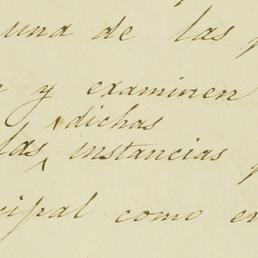 una de las
y examinen
dichas
las instancias
cipal como en